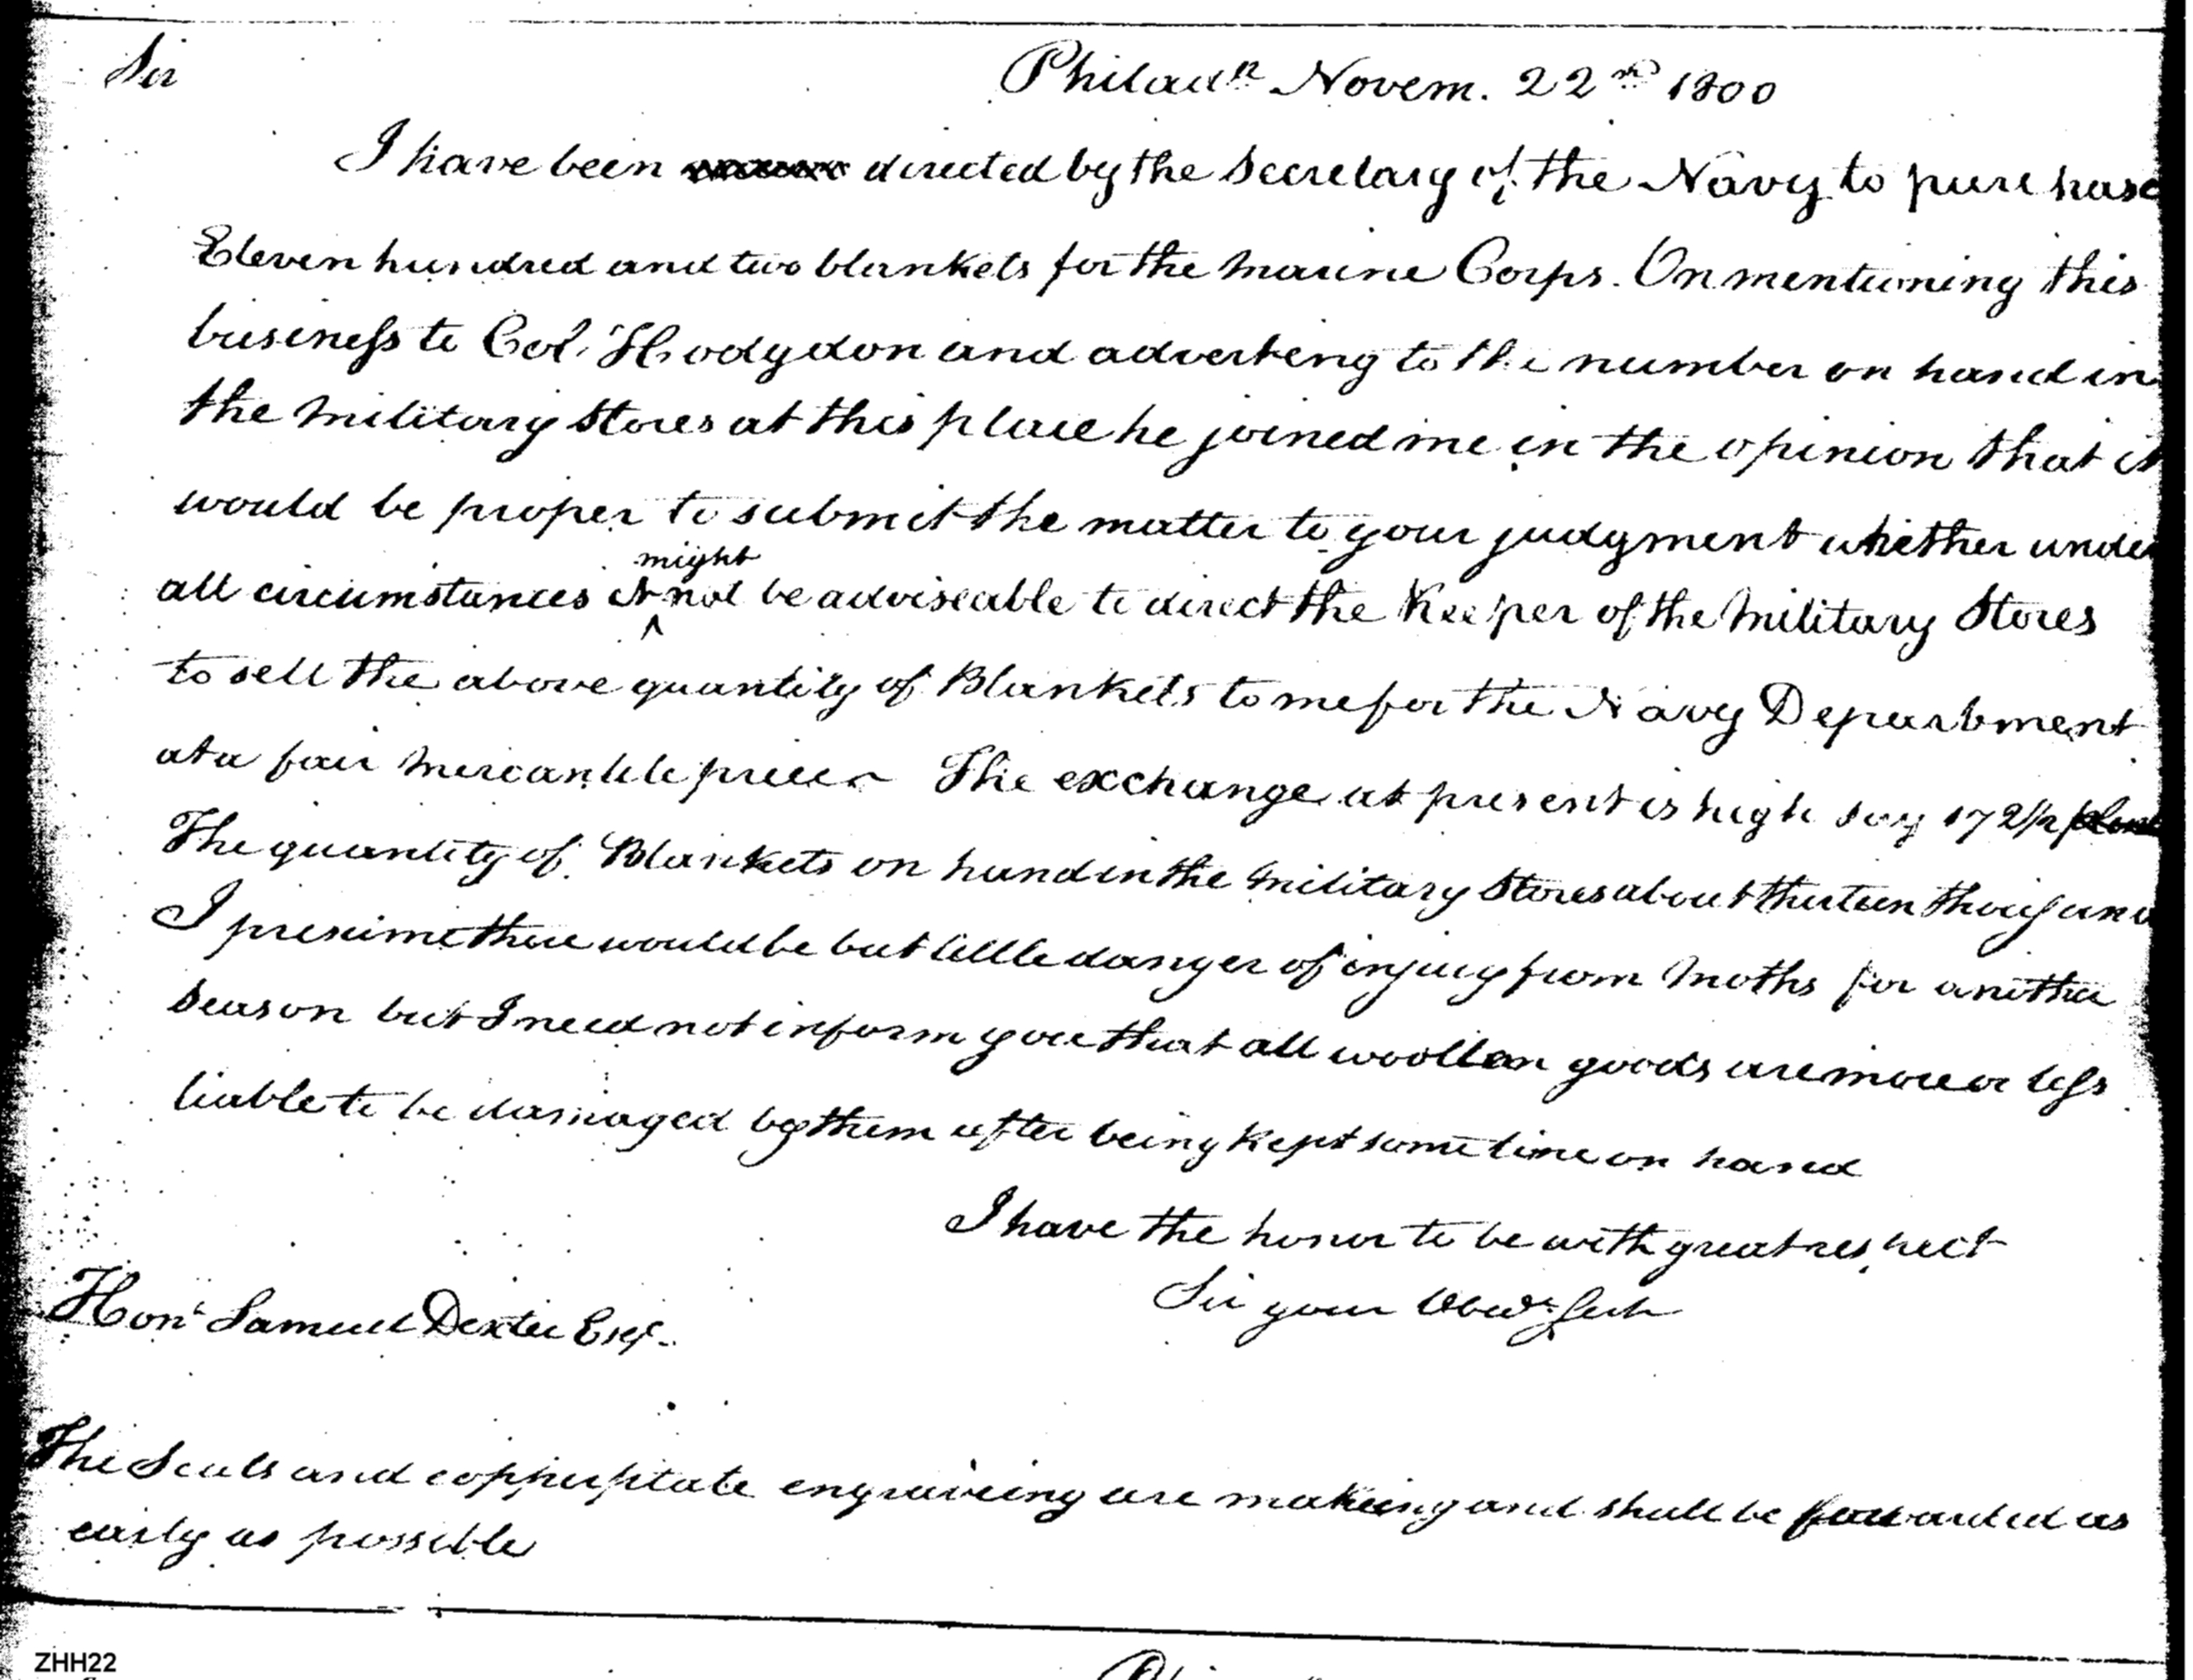 Sir
Philad.a Novem. 22nd 1800
I have been directed by the Secretary of the Navy to purchase
Eleven hundred and two blankets for the Marine Corps. On mentioning this
business to Col. Hodgdon and adverting to the number on hand in
the Military Stores at this place he joined me in the opinion that it
would be proper to submit the matter to your judgment whether under
might
all circumstances it not be adviseable to direct the Keeper of the Military Stores
to sell the above quantity of Blankets to me for the Navy Department
at a fair mercantile price. The exchange at present is high say 172½
The quantity of Blankets on hand in the Military Stores about thirteen thousand
I presume there would be but little danger of injury from Moths for another
Season but I need not inform you that all woollen goods are more or less
liable to be damaged by them after being kept some time on hand
I have the honor to be with great respect
Sir your Obedt. Servt
Honl Samuel Dexter Esqr.
The Seals and copperplate engraveing are making and shall be forwarded as
early as possible
ZHH22